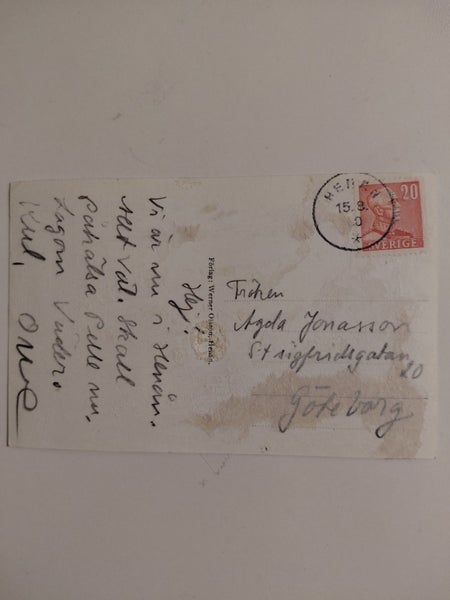 Hej!
Vi är nu i Henån.
Allt väl. Skall
påhälsa Pelle nu.
Lagom Väder.
Kul,
Förlag: Werner Olsson, Henån.
HENÅN
15.9.
20
SVERIGE
Fröken
Agda Jonasson
St sigfridsgatan
20
Göteborg